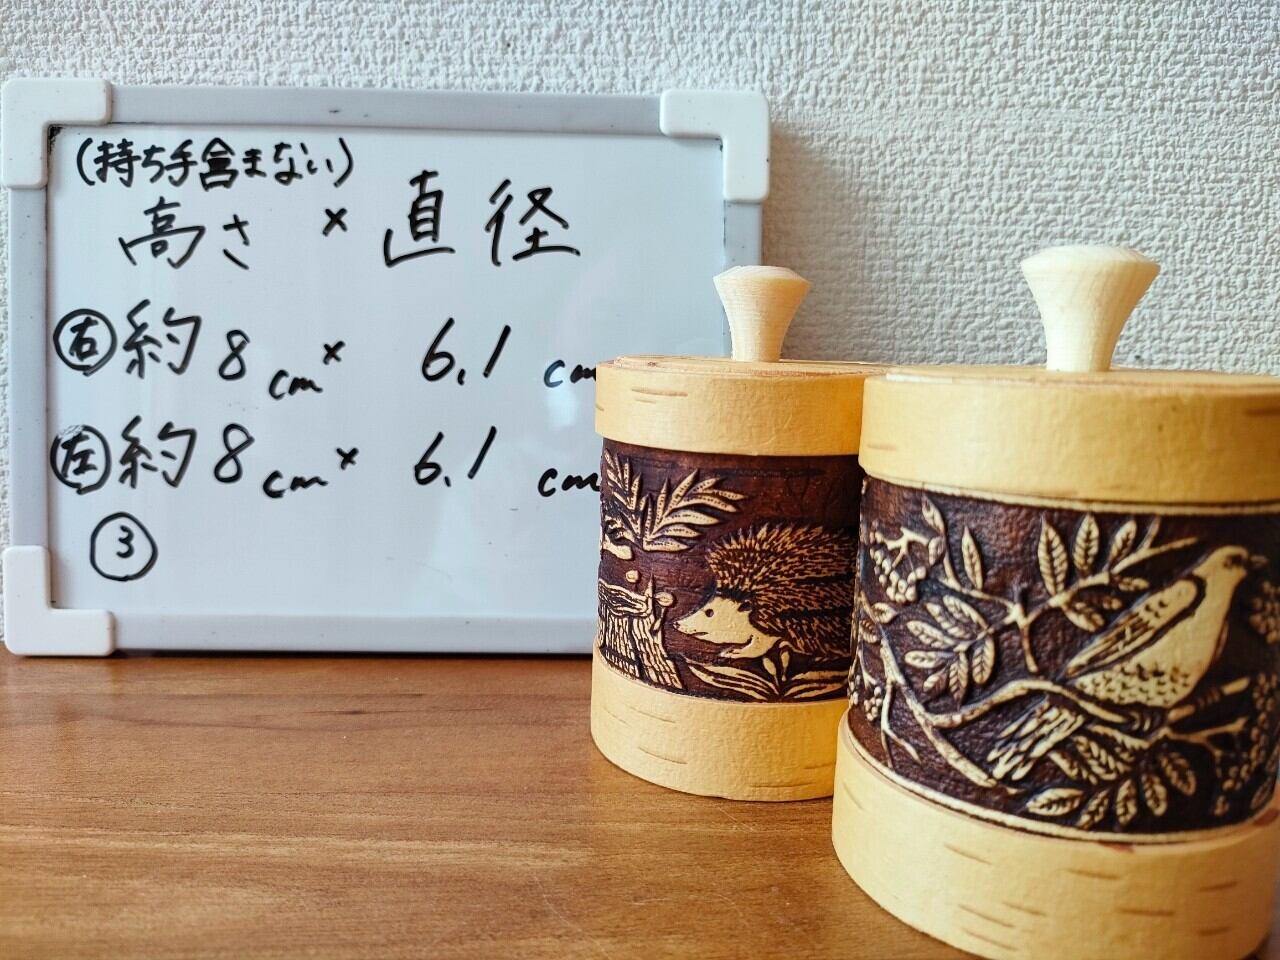 (持ち手含まない)
高さ × 直径
㊨ 約 8 cm × 6.1 cm
㊧ 約 8 cm × 6.1 cm
③